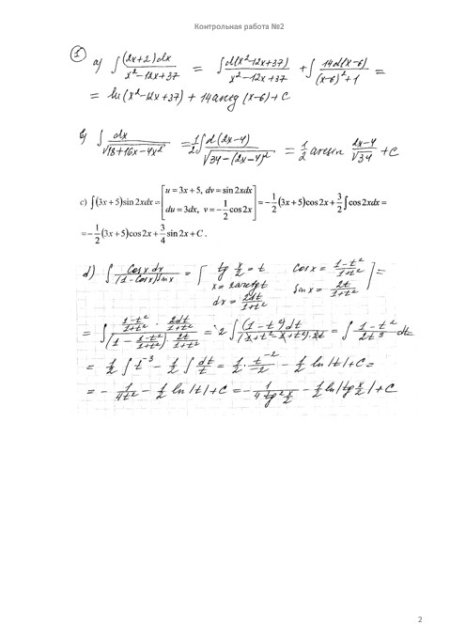 Контрольная работа №2
① a) ∫ (2x+2)dx / (x²-12x+37) = ∫ d(x²-12x+37) / (x²-12x+37) + ∫ 14d(x-6) / ((x-6)²+1) =
= ln(x²-12x+37) + 14 arctg(x-6) + C
b) ∫ dx / √(18+16x-4x²) = 1/2 ∫ d(2x-4) / √(34-(2x-4)²) = 1/2 arcsin (2x-4)/√34 + C
c) ∫(3x+5)sin2xdx = [u=3x+5, dv=sin2xdx; du=3dx, v=-1/2 cos2x] = -1/2(3x+5)cos2x + 3/2 ∫cos2xdx =
= -1/2(3x+5)cos2x + 3/4 sin2x + C.
d) ∫ cosxdx / ((1-cosx)sinx) = [tg x/2 = t cosx = (1-t²)/(1+t²)
x = 2arctgt sinx = 2t/(1+t²)
dx = 2dt/(1+t²)] =
= ∫ ((1-t²)/(1+t²) · 2dt/(1+t²)) / ((1-(1-t²)/(1+t²)) · 2t/(1+t²)) = 2∫ (1-t²)dt / ((1+t²-1+t²)·2t) = ∫ (1-t²)/(2t³) dt
= 1/2 ∫ t⁻³ - 1/2 ∫ dt/t = 1/2 · t⁻²/-2 - 1/2 ln|t| + C =
= - 1/(4t²) - 1/2 ln|t| + C = - 1/(4tg² x/2) - 1/2 ln|tg x/2| + C
2